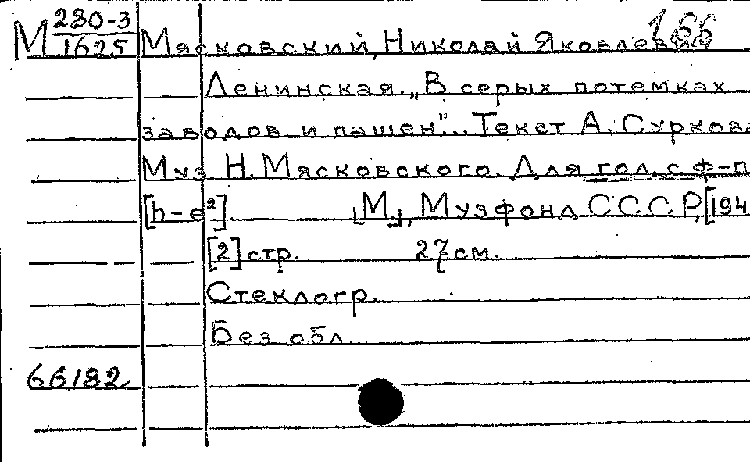 М 280-3/1625 Мясковский, Николай Яковлевич
Ленинская. „В серых потемках
заводов и пашен"... Текст А. Суркова
Муз. Н. Мясковского. Для гол. с ф-п
[h-e²] [М.], Музфонд СССР, [194
[2] стр. 27 см.
Стеклогр.
Без обл.
66182